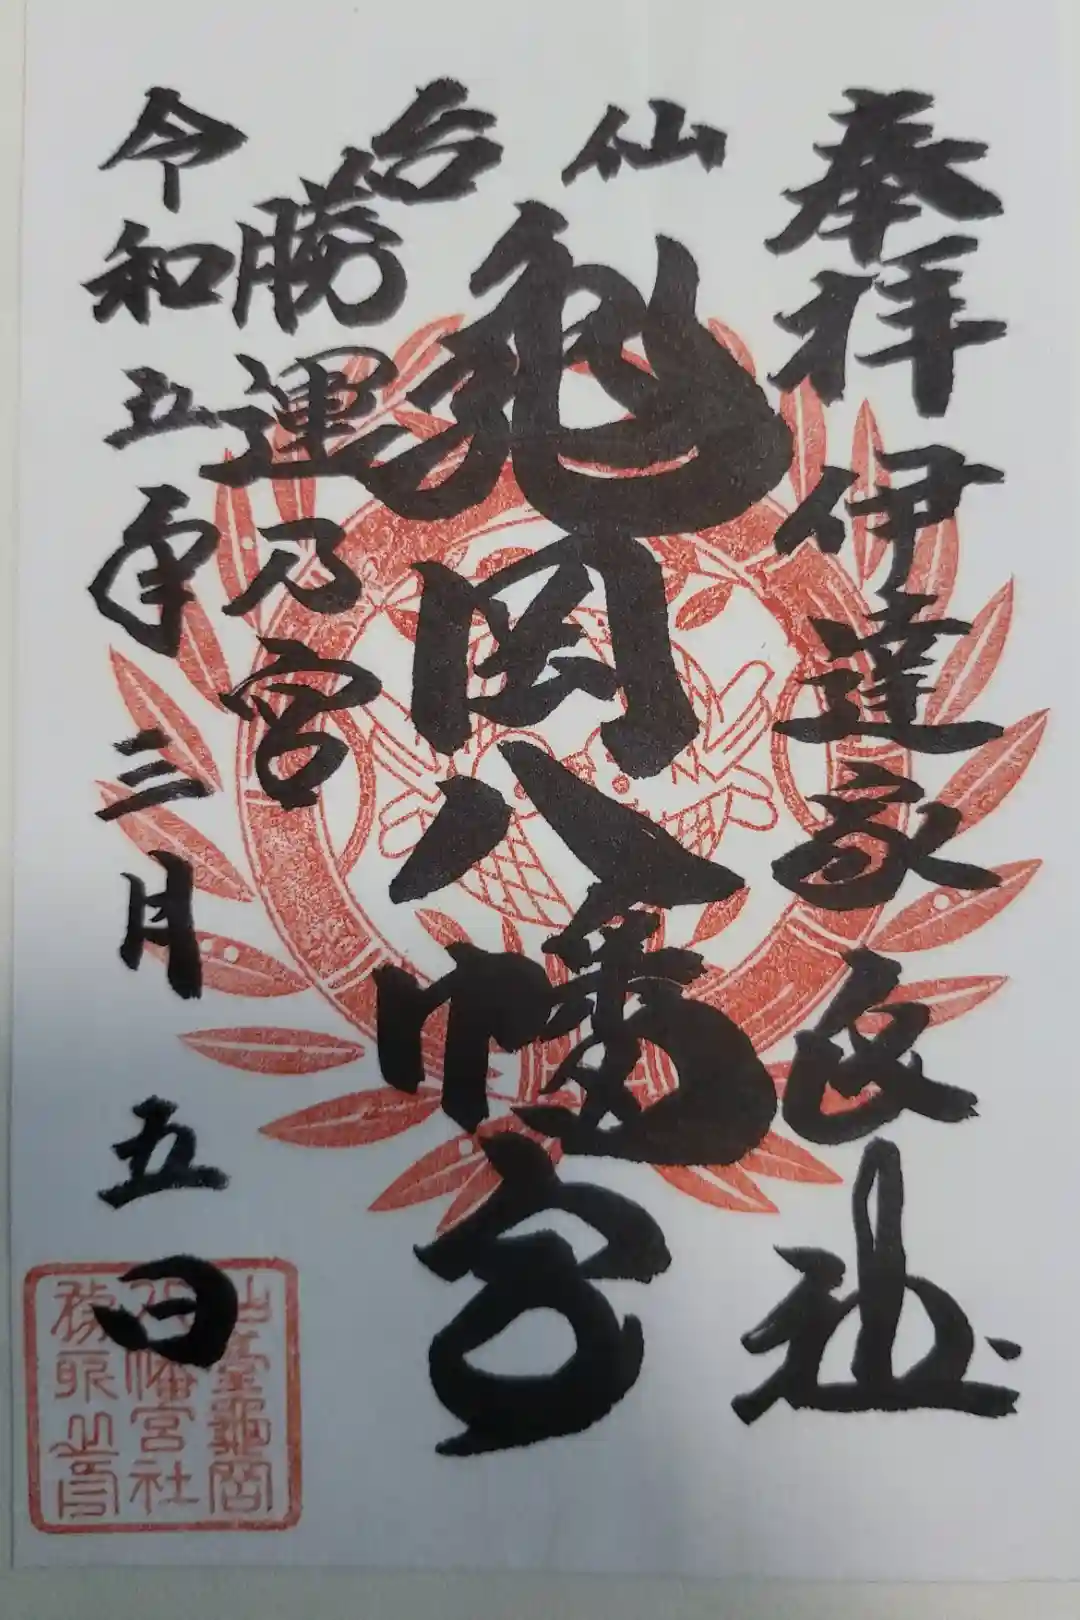 奉拝 伊達家社
仙台
亀岡八幡宮
勝運乃宮
令和五年三月五日
仙臺龜岡
八幡宮社
務所之印